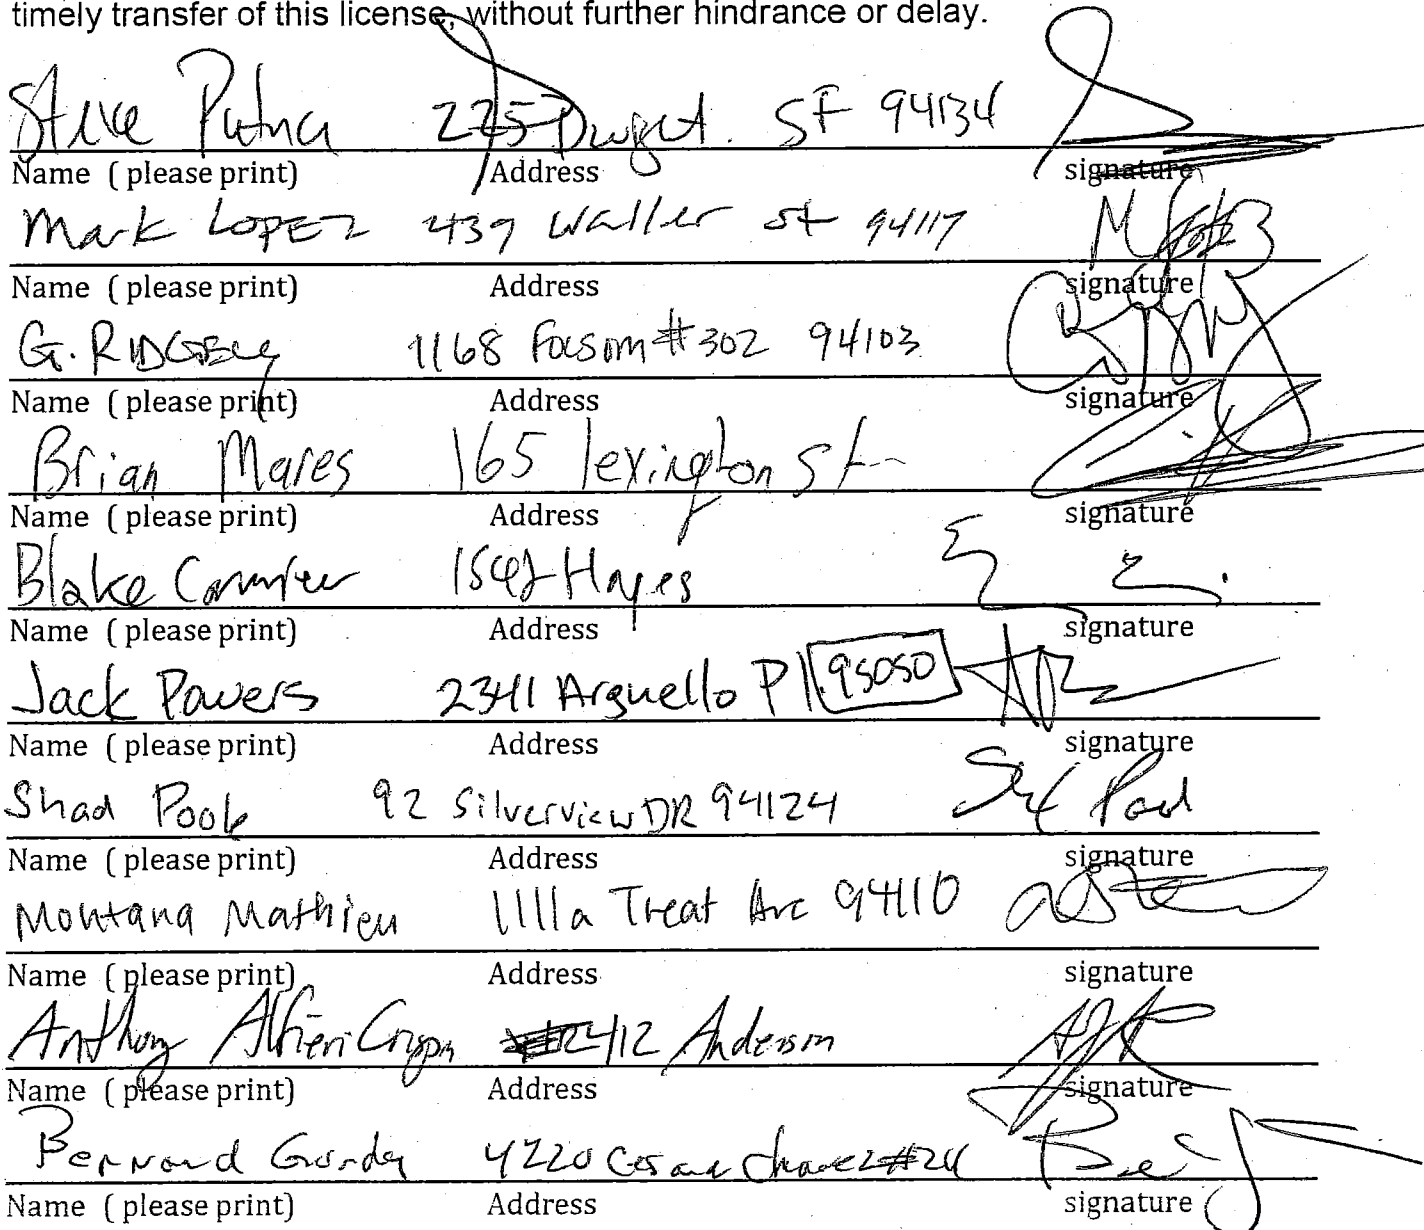 timely transfer of this license, without further hindrance or delay.
Steve 225 Dwight. SF 94134
Name (please print) Address signature
Mark LOPEZ 439 Waller st 94117
Name (please print) Address signature
G. RIDGELY 1168 Folsom #302 94103
Name (please print) Address signature
Brian Mares 165 lexington St
Name (please print) Address signature
Blake Hayes
Name (please print) Address signature
Jack Powers 2341 Arguello Pl. 95050
Name (please print) Address signature
Shad Poole 92 Silverview DR 94124
Name (please print) Address signature
Montana Mathieu 1111a Treat Ave 94110
Name (please print) Address signature
Anthony Alfieri 412 Anderson
Name (please print) Address signature
Bernard 4220 Cesar Chavez #24
Name (please print) Address signature